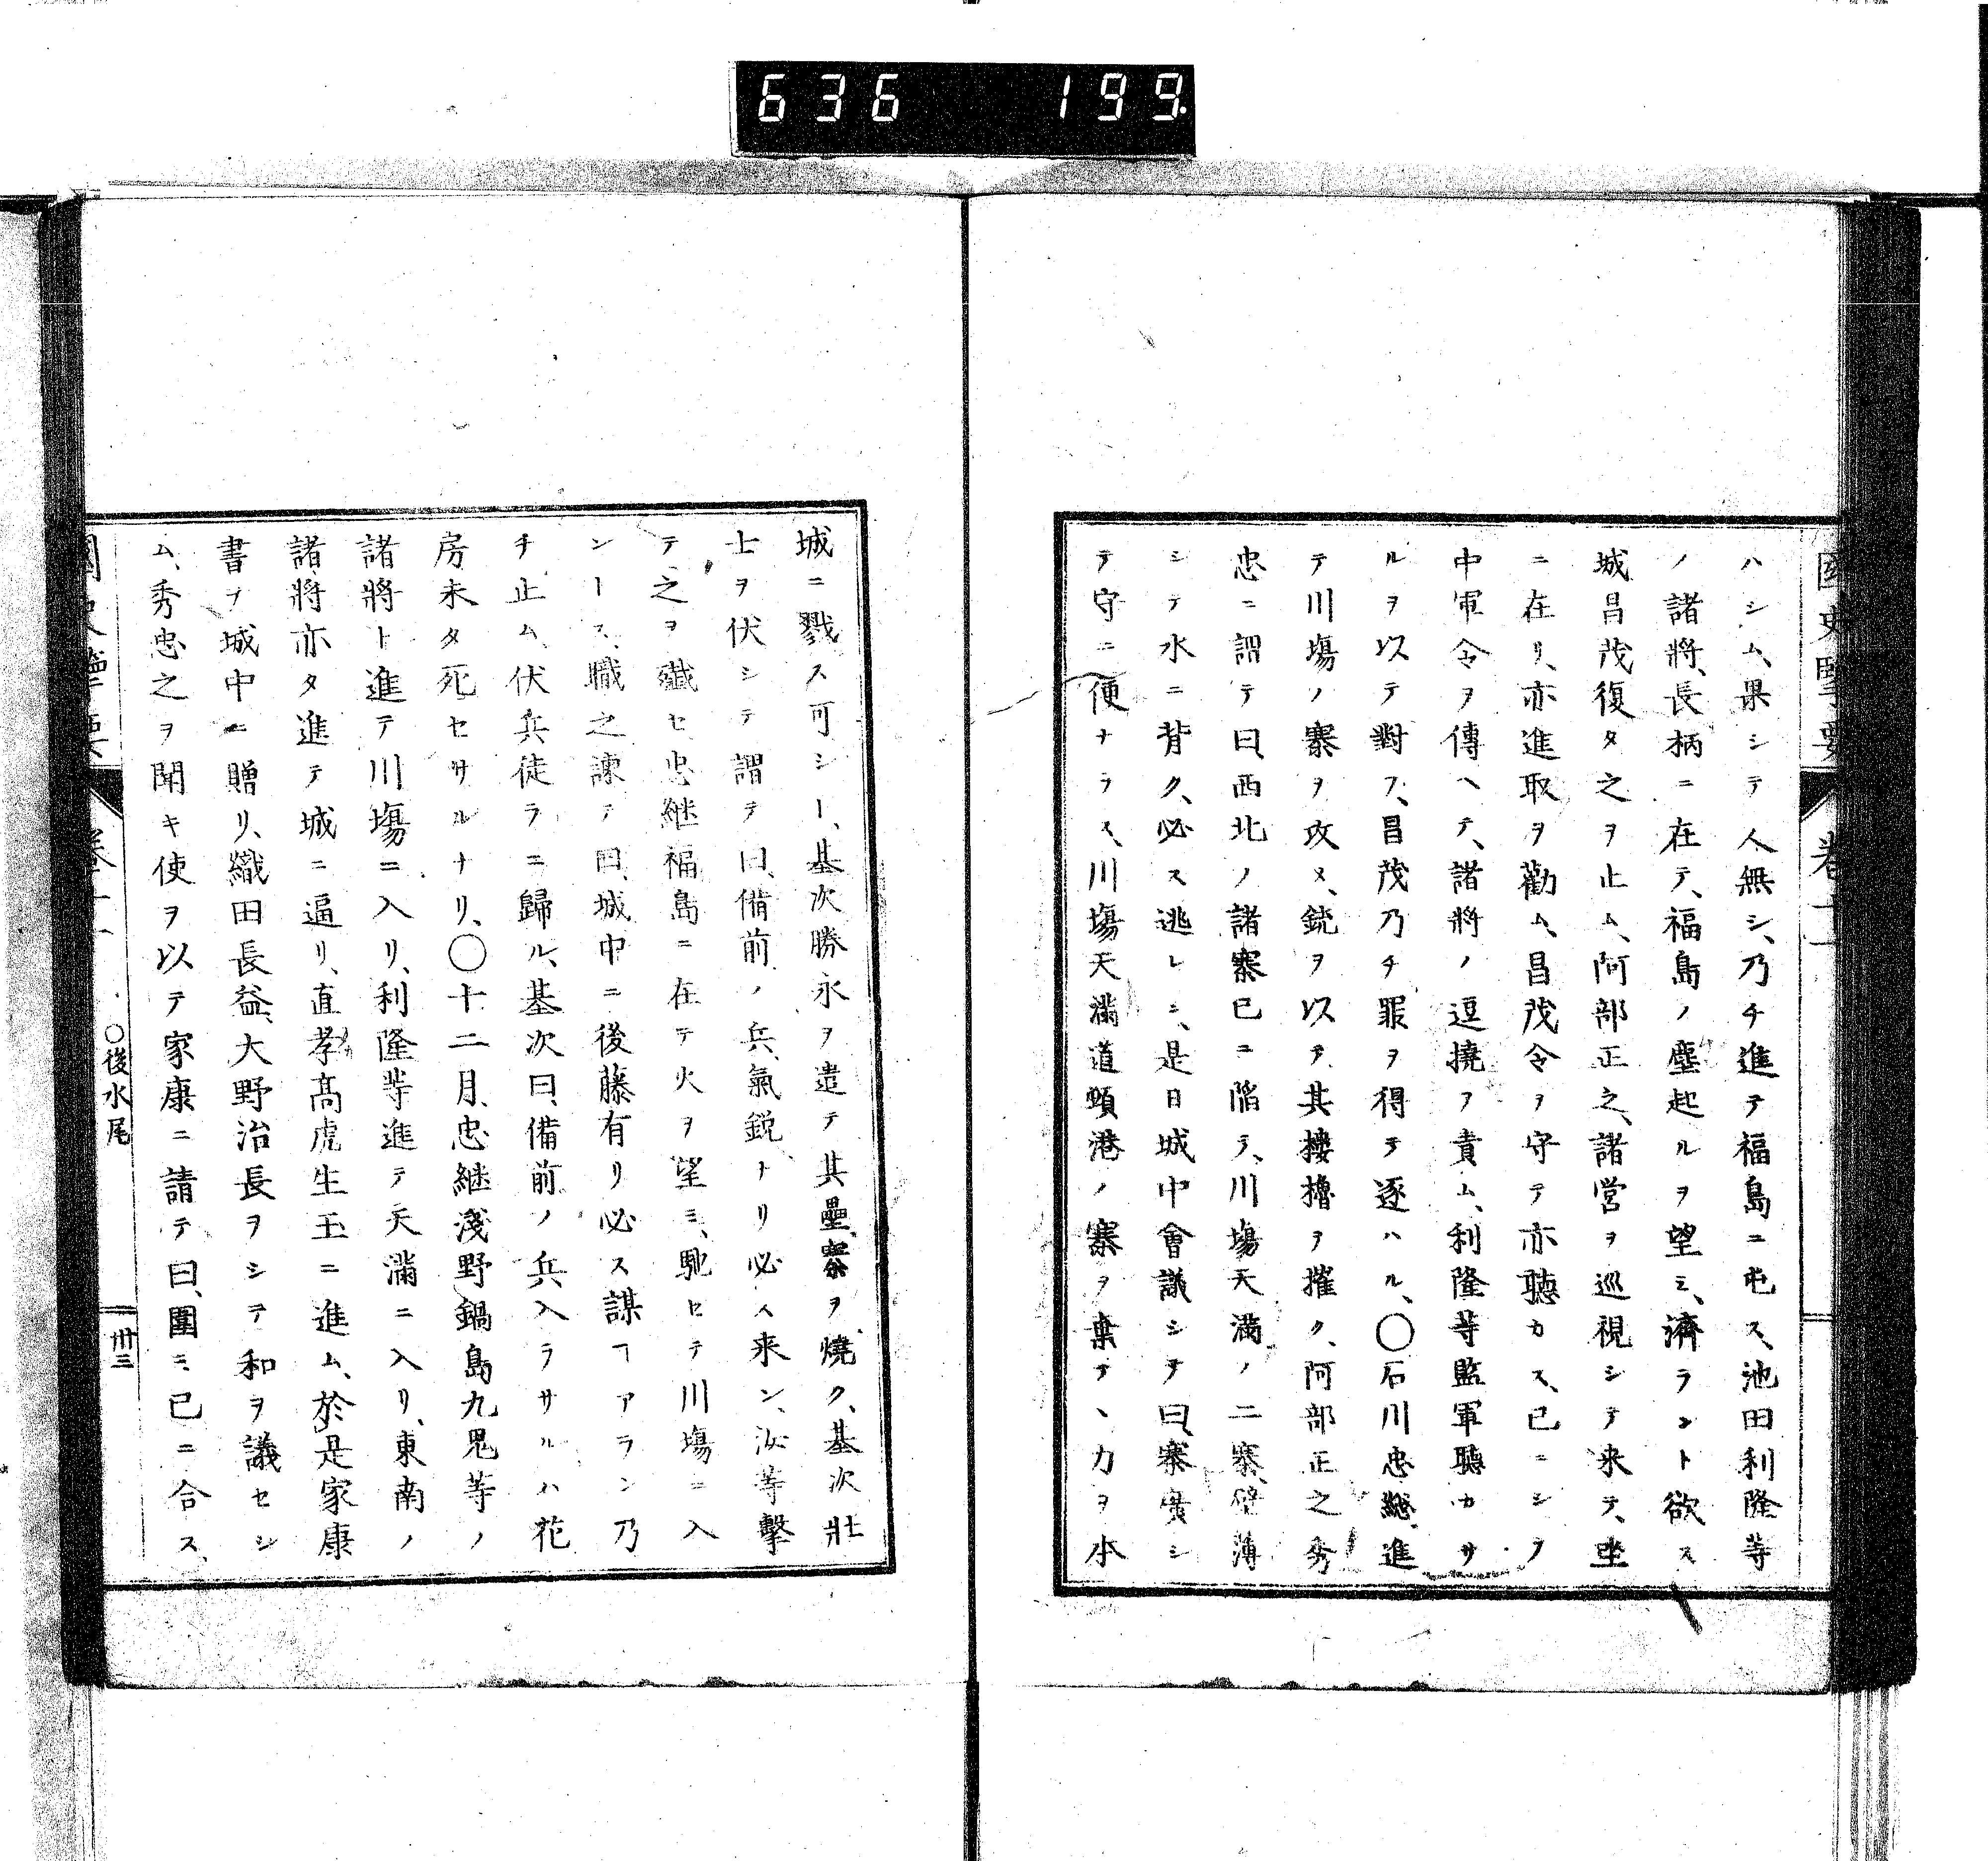 636 199
國史擥要 卷十一
ハシム、果シテ人無シ、乃チ進テ福島ニ屯ス、池田利隆等
ノ諸將、長柄ニ在テ、福島ノ塵起ルヲ望ミ、濟ラントト欲ス
城昌茂復タ之ヲ止ム、阿部正之、諸営ヲ巡視シテ来テ、坐
ニ在リ、亦進取ヲ勸ム、昌茂令ヲ守テ亦聽カス、已ニシテ
中軍令ヲ傳ヘテ、諸將ノ逗撓ヲ責ム、利隆等監軍聽カサ
ルヲ以テ對フ、昌茂乃チ罪ヲ得テ逐ハル、〇石川忠総、進
テ川塲ノ寨ヲ攻メ、銃ヲ以テ其樓櫓ヲ摧ク、阿部正之秀
忠ニ謂テ曰、西北ノ諸寨已ニ陥テ、川塲天満ノ二寨、壁薄
シテ水ニ背ク、必ス逃レシ、是日城中會議シテ曰、寨實シ
テ守ニ便ナラス、川塲天滿道頓港ノ寨ヲ棄テヽ力ヲ本
城ニ戮ス可シー、基次勝永ヲ遣テ其壘寨ヲ燒ク、基次壯
士ヲ伏シテ謂テ曰、備前ノ兵、氣鋭ナリ必ス来ン、汝等擊
テ之ヲ殲セ忠継福島ニ在テ火ヲ望ミ、馳セテ川塲ニ入
ンース、職之諫テ曰、城中ニ後藤有リ必ス謀ヿアラン乃
チ止ム、伏兵徒ラニ歸ル、基次曰、備前ノ兵入ラサルハ花
房未タ死セサルナリ、〇十二月、忠継淺野鍋島九鬼等ノ
諸將ト進テ川塲ニ入リ、利隆等進テ天滿ニ入リ、東南ノ
諸將亦タ進テ城ニ逼リ、直孝高虎生玉ニ進ム、於是家康
書ヲ城中ニ贈リ、織田長益、大野治長ヲシテ和ヲ議セシ
ム、秀忠之ヲ聞キ使ヲ以テ家康ニ請テ曰、圍ミ已ニ合ス、
國史擥要 卷十一 〇後水尾 卅三